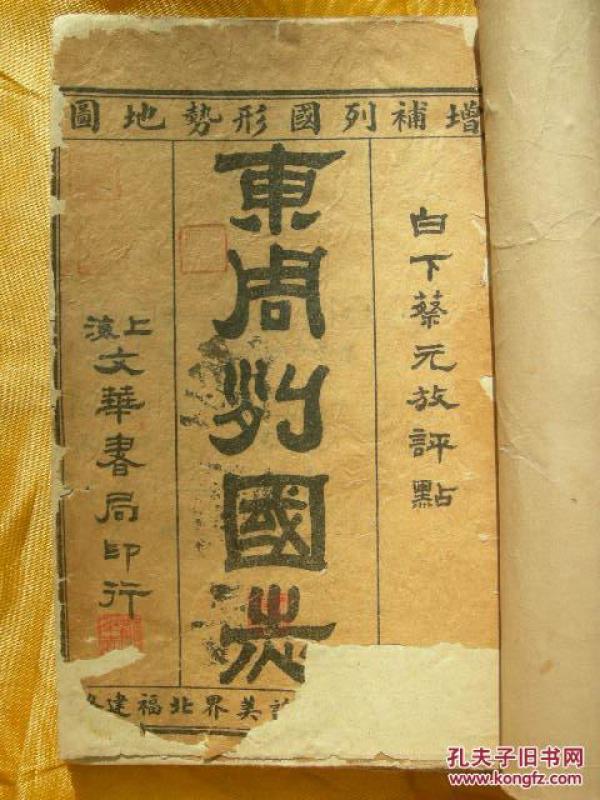 增補列國形勢地圖
白下蔡元放評點
東周列國志
上海文華書局印行
美界北福建
孔夫子旧书网
www.kongfz.com